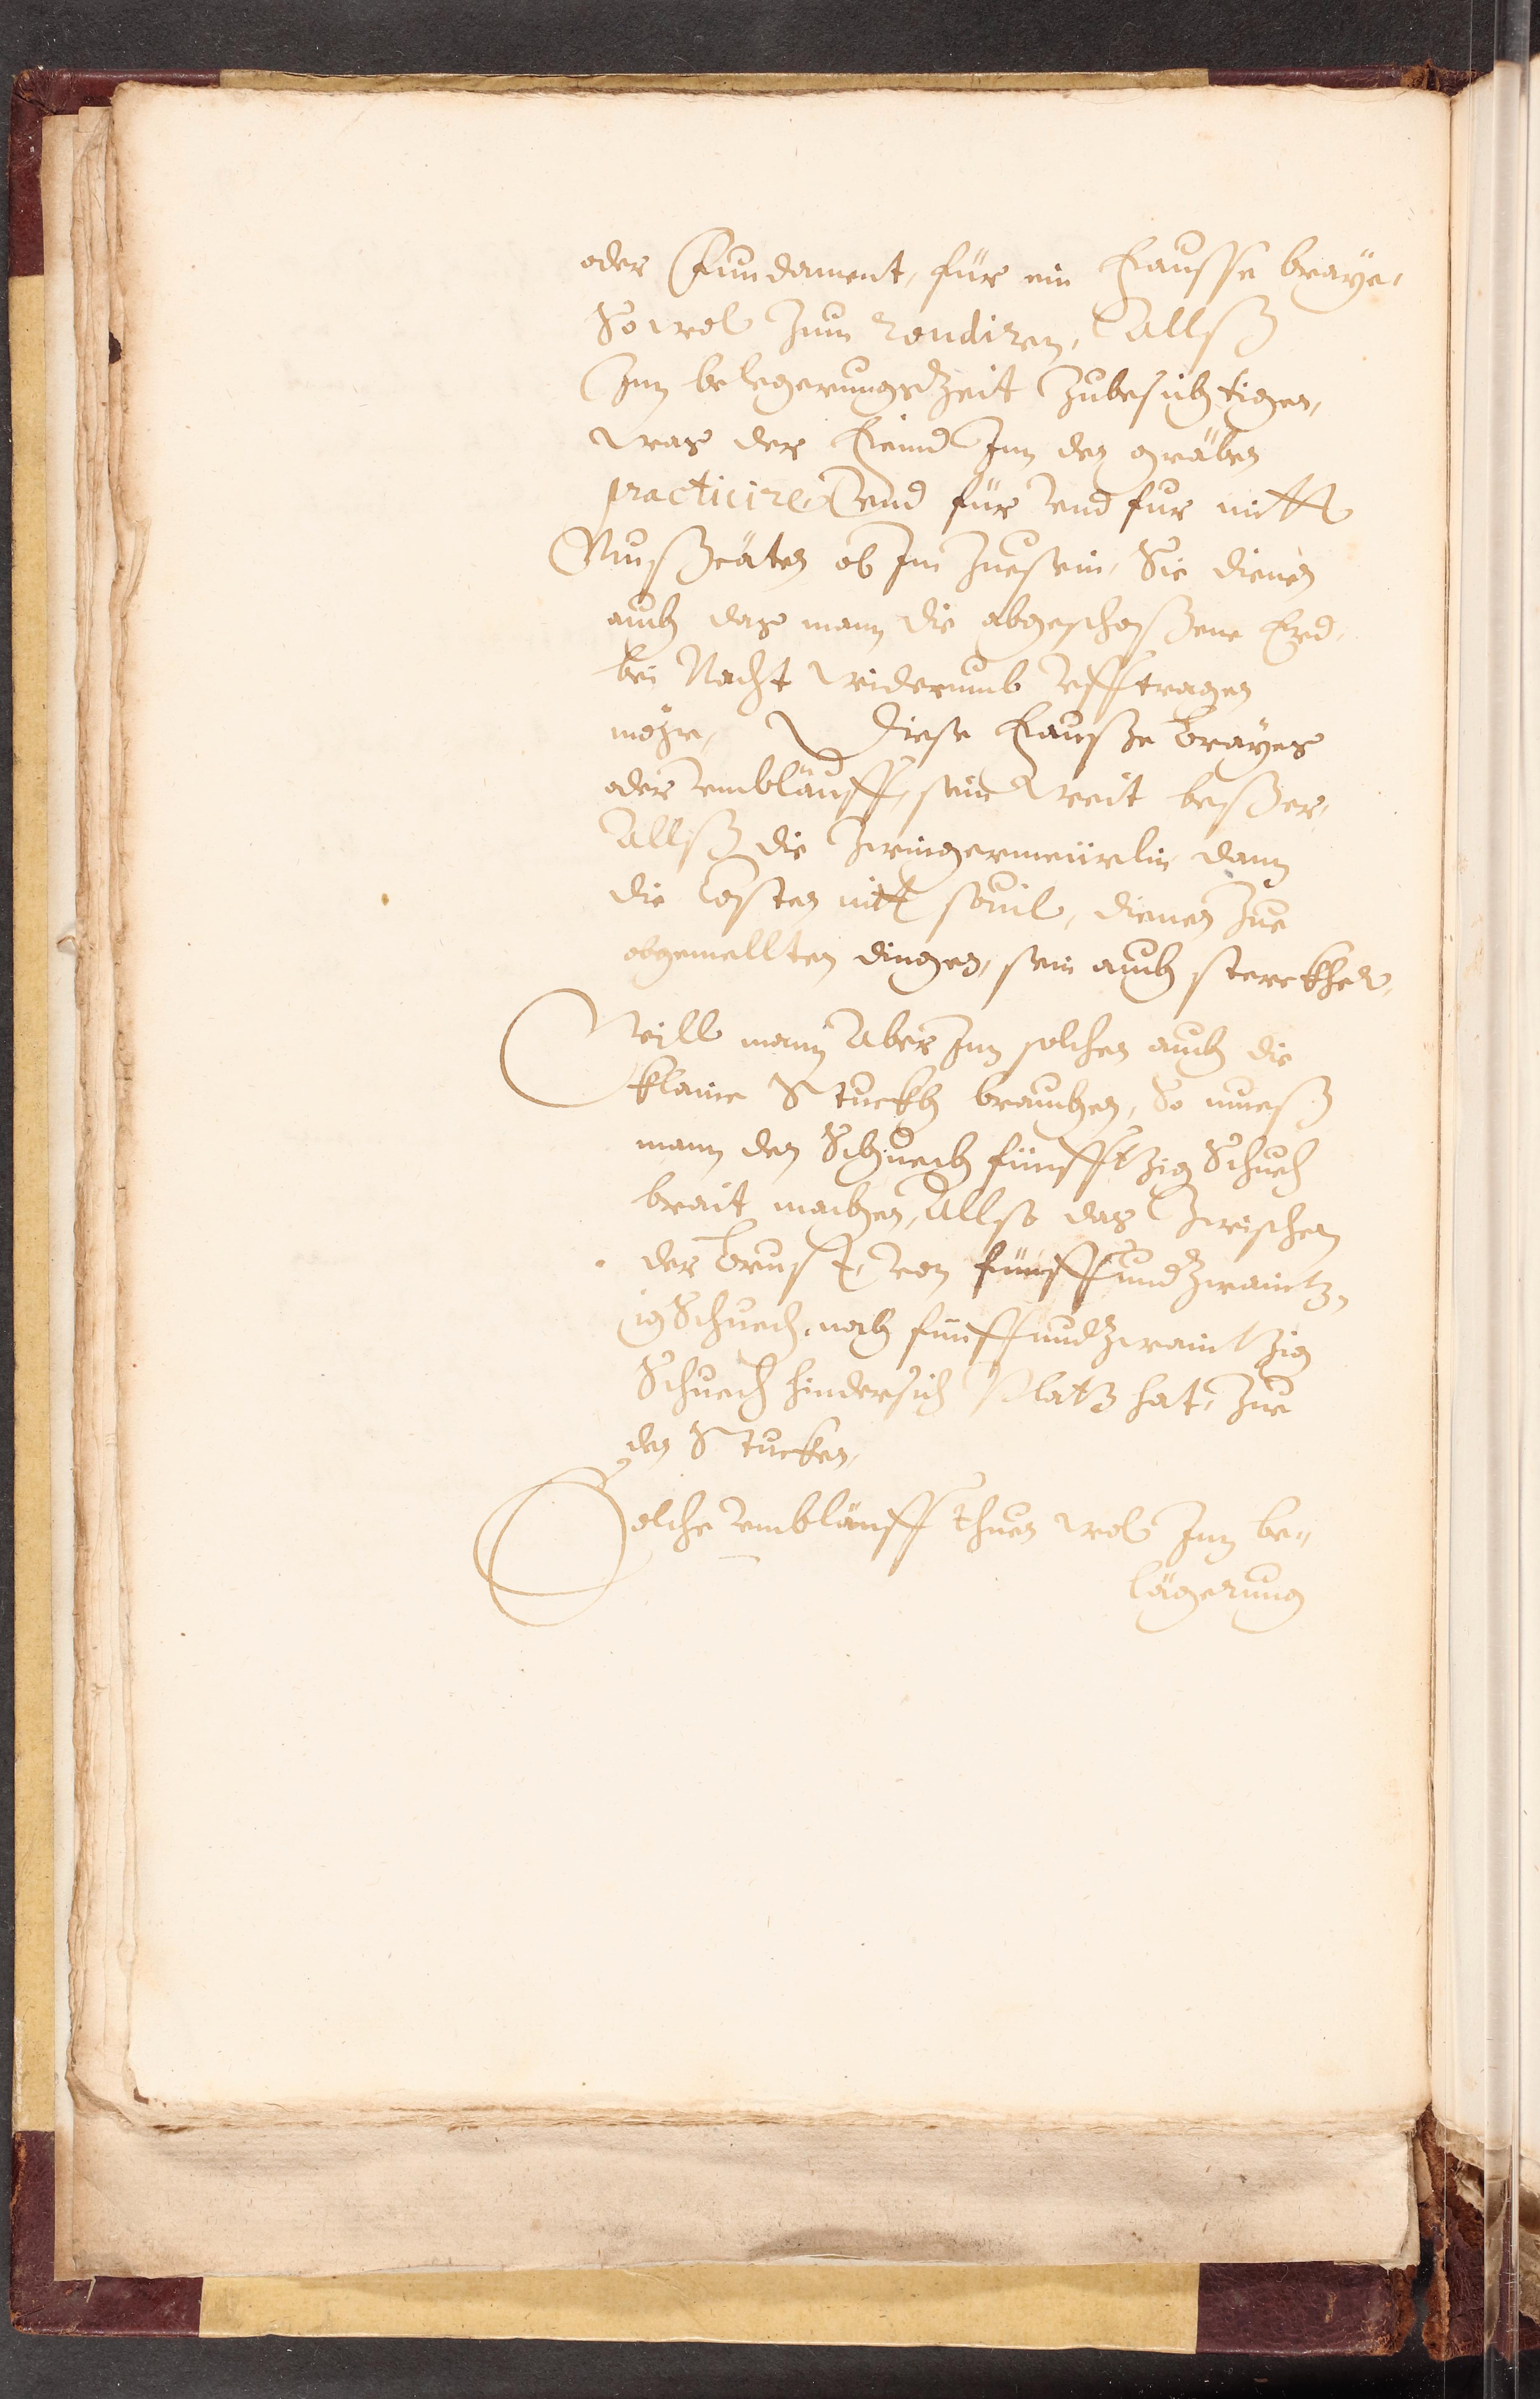 oder Fundament, für ein Fausse braye,
So wol zum rondiren, Allß
Inn belegerungszeit zubesichtigen,
was der Feind Inn den gräben
practicire, Vnd für vnd fur mitt
Mußcäten ob Im zuesein, Sie dienen
auch das mann die abgeschoßene Erd,
bei Nacht widerumb vfftragen
möge, Diese Fauße brayes
oder vmbläuff, sein weit beßer,
Allß die Zwingermeürlin dann
die Costen nitt souil, dienen zue
obgemellten dingen, sein auch sterckher,
Will mann Aber Inn solchen auch die
kleine Stuckh brauchen, So mueß
mann den Schuech fünfftzig Schuch
brait machen, Allso das Zwischen
der Brust, von fünffundzwaintz,,
ig Schuech, noch fünffundzwaintzig
Schuech hindersich Platz hat, zue
den Stucken,
Solche vmbläuff thuen wol Inn be,,
lägerung